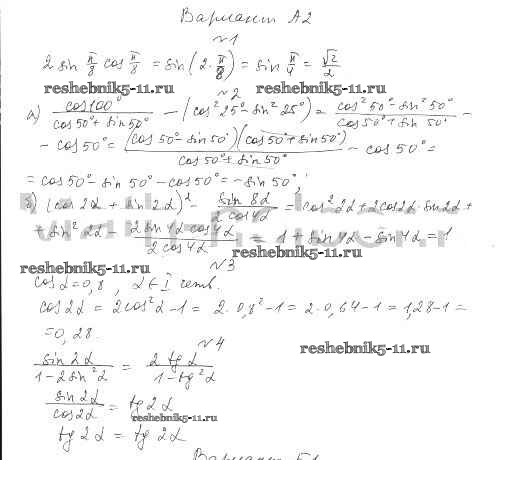 Вариант А2
№1
2 sin π/8 cos π/8 = sin(2·π/8) = sin π/4 = √2/2
reshebnik5-11.ru reshebnik5-11.ru
№2
а) cos100°/(cos50°+sin50°) - (cos²25°-sin²25°) = (cos²50°-sin²50°)/(cos50°+sin50°) -
- cos50° = (cos50°-sin50°)(cos50°+sin50°)/(cos50°+sin50°) - cos50° =
= cos50°-sin50°-cos50° = -sin50°;
б) (cos2α + sin2α)² - sin8α/(2cos4α) = cos²2α+2cos2α·sin2α+
+ sin²2α - 2sin4α cos4α/(2cos4α) = 1+sin4α-sin4α=1
reshebnik5-11.ru
reshebnik5-11.ru
№3
cosα=0,8, α∈I четв.
cos2α = 2cos²α-1 = 2·0,8²-1 = 2·0,64-1 = 1,28-1=
=0,28.
№4
reshebnik5-11.ru
sin2α/(1-2sin²α) = 2tgα/(1-tg²α)
sin2α/cos2α = tg2α
reshebnik5-11.ru
tg2α = tg2α
Вариант Б1